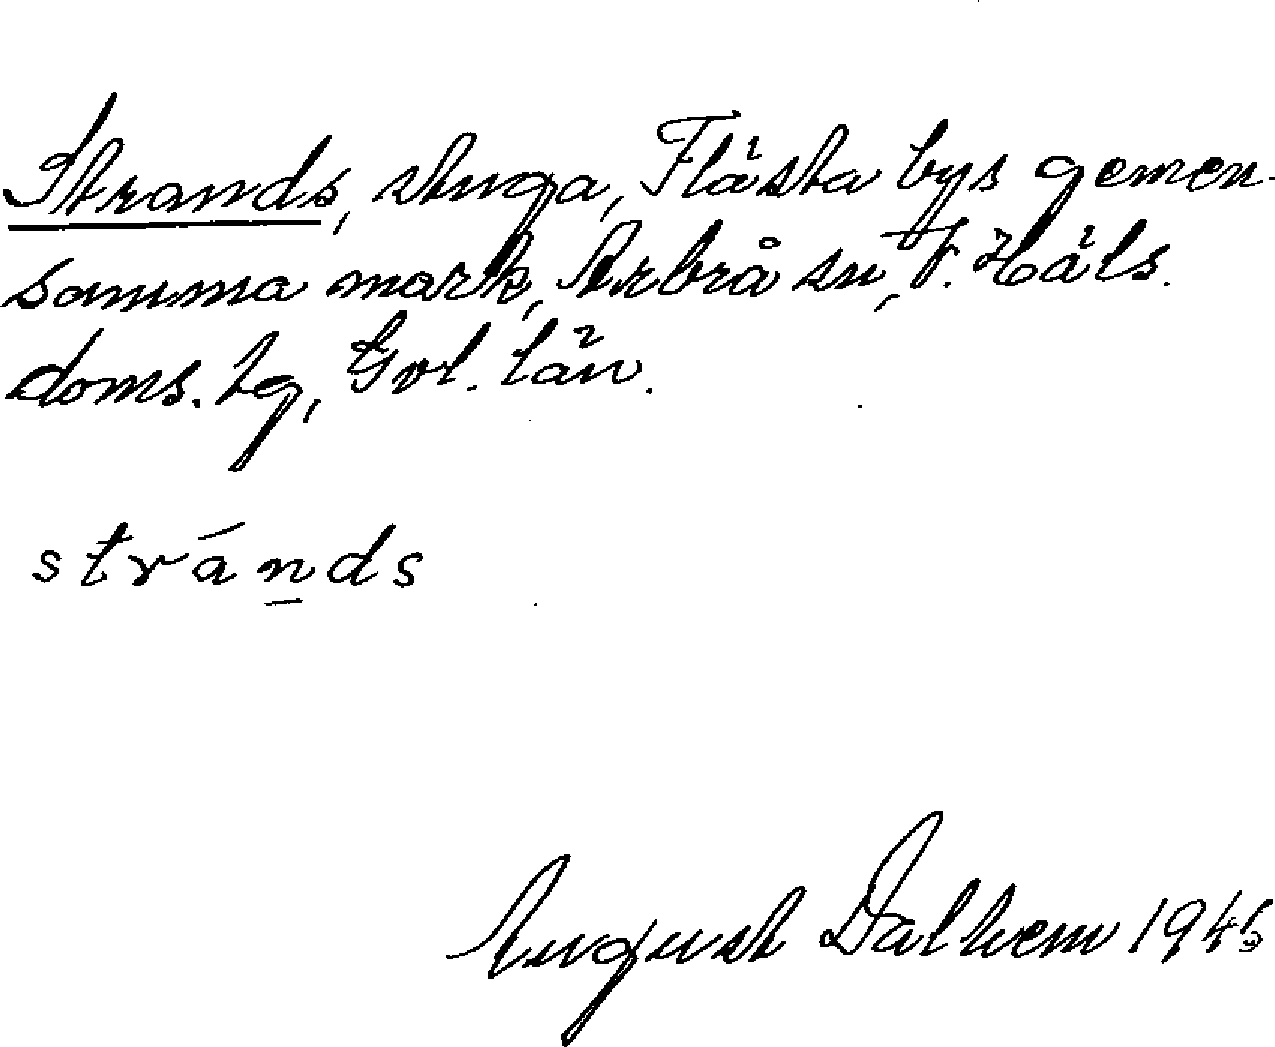 Strands, stuga, Flästa bys gemen-
samma mark, Arbrå sn, V. Häls.
doms. tg, Gvl. län.
stránds
August Dalhem 1945